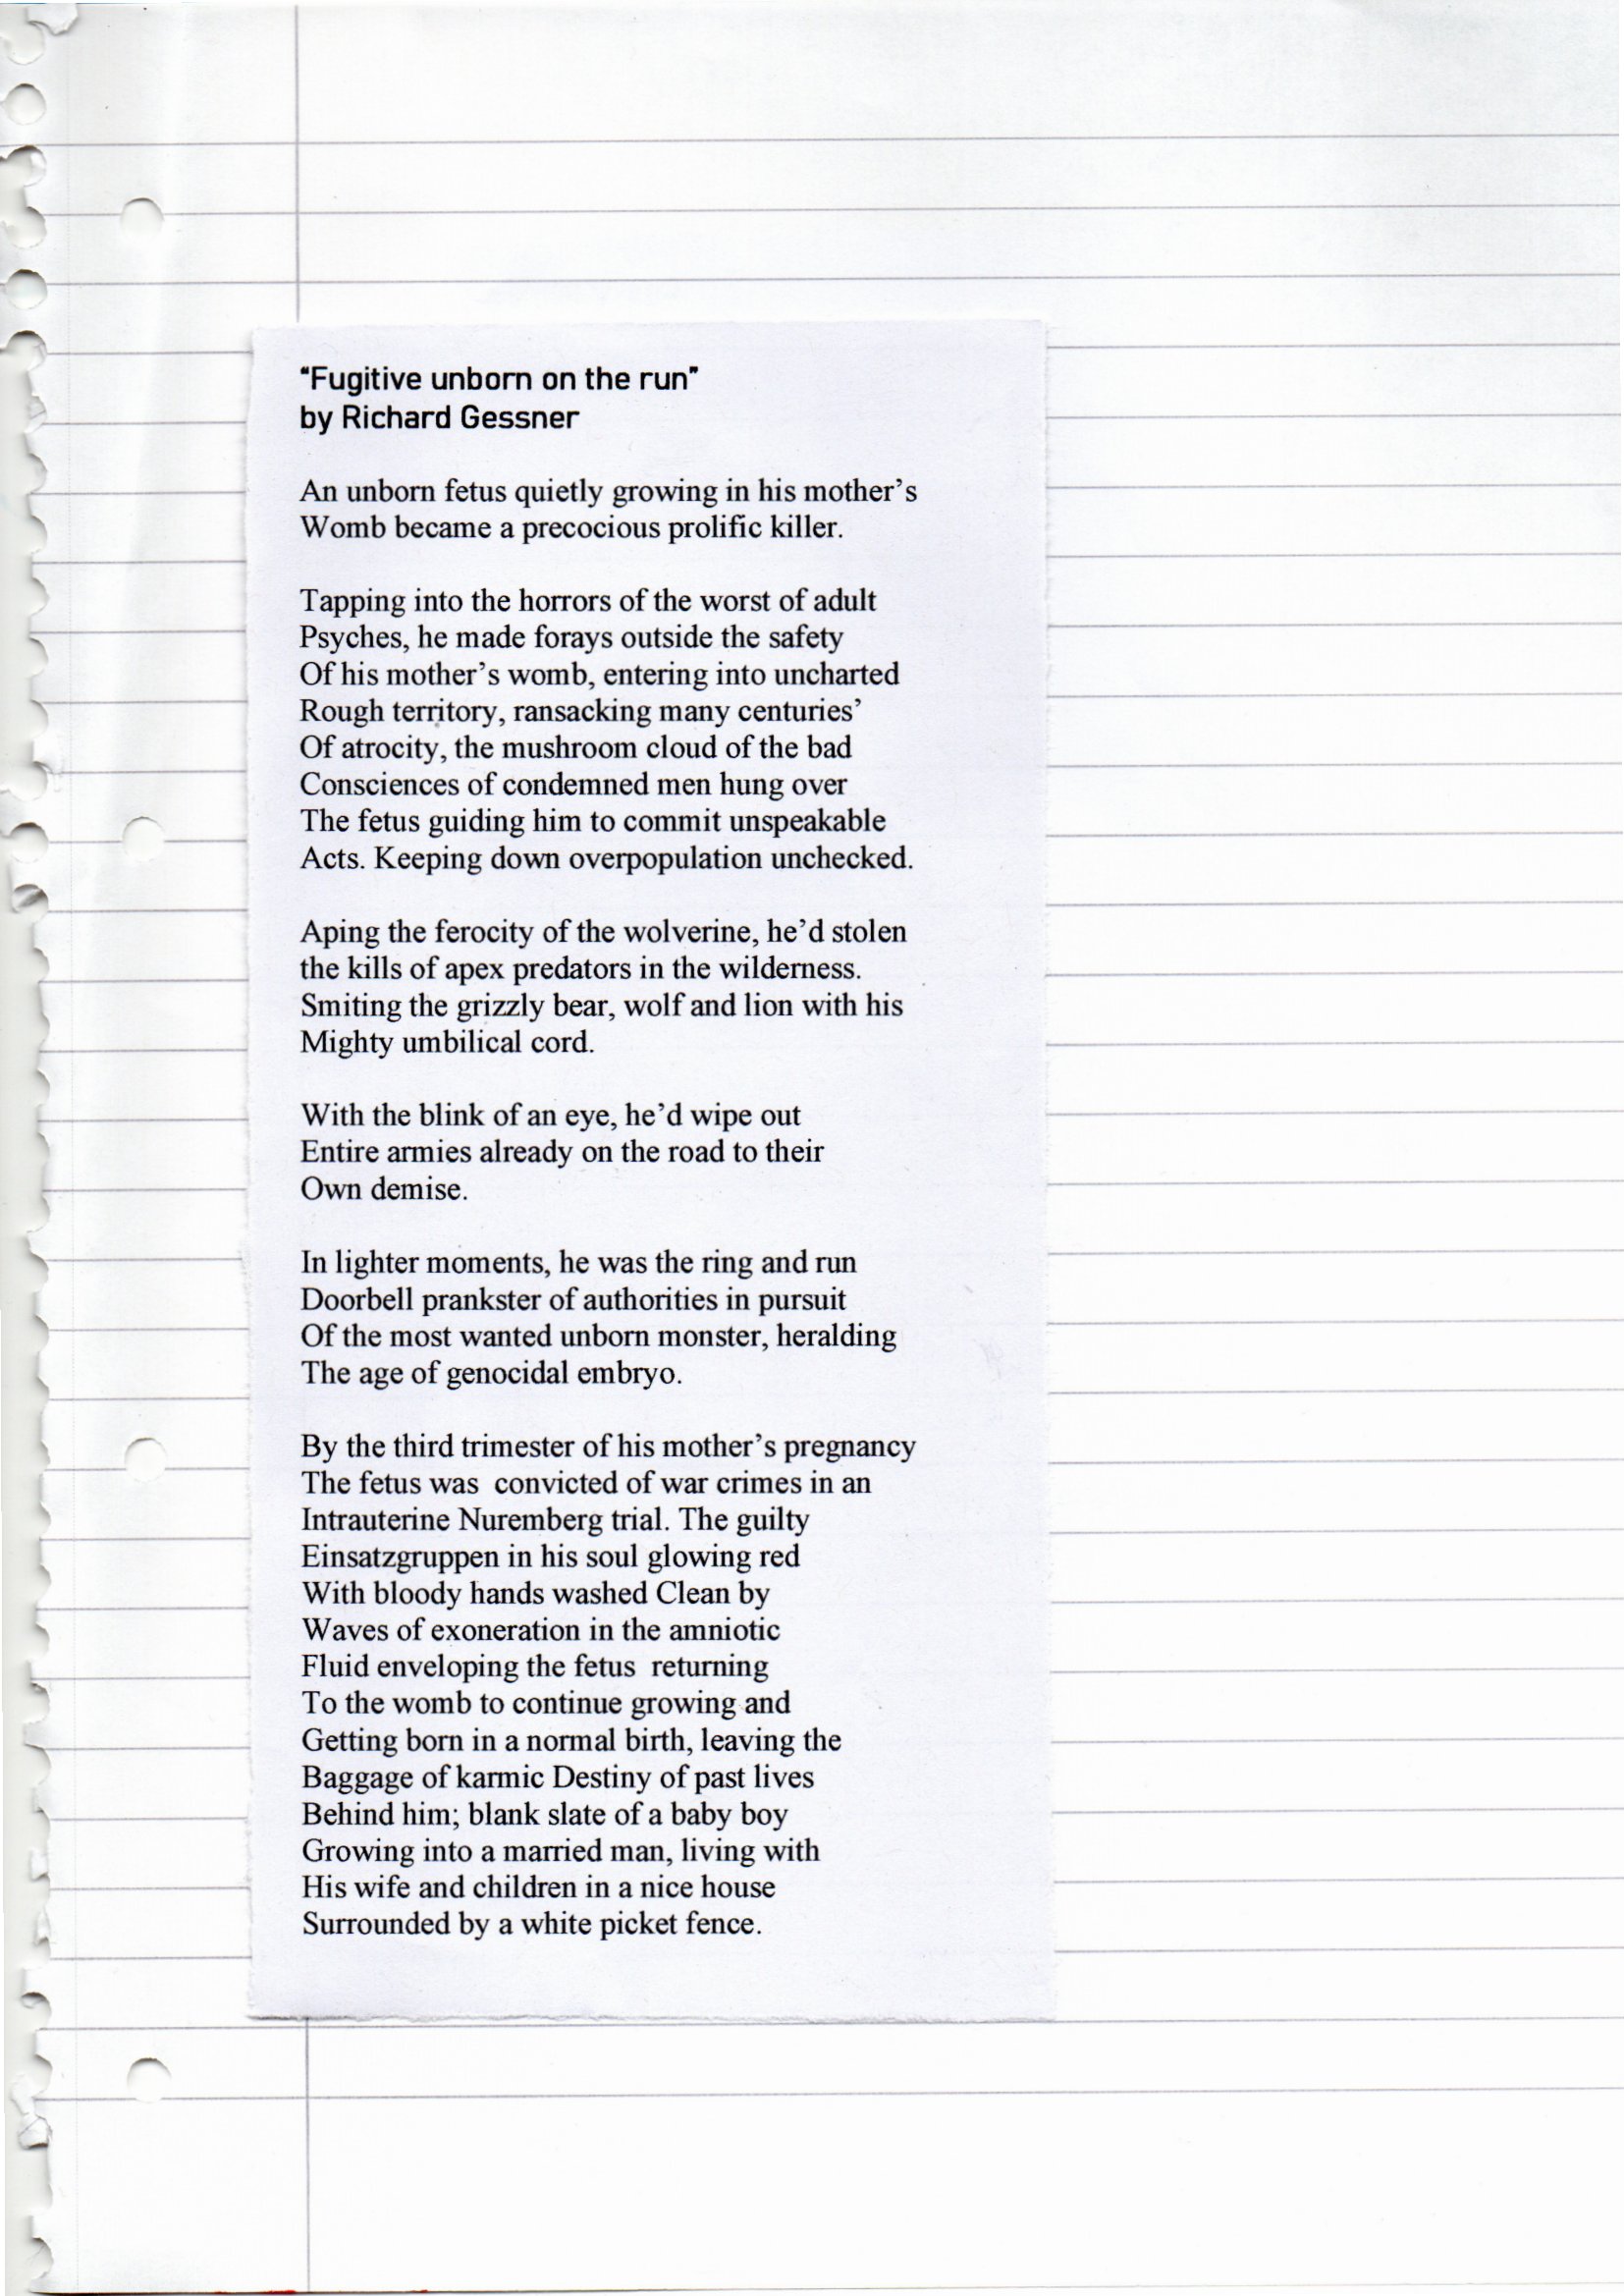 “Fugitive unborn on the run”
by Richard Gessner
An unborn fetus quietly growing in his mother’s
Womb became a precocious prolific killer.
Tapping into the horrors of the worst of adult
Psyches, he made forays outside the safety
Of his mother’s womb, entering into uncharted
Rough territory, ransacking many centuries’
Of atrocity, the mushroom cloud of the bad
Consciences of condemned men hung over
The fetus guiding him to commit unspeakable
Acts. Keeping down overpopulation unchecked.
Aping the ferocity of the wolverine, he’d stolen
the kills of apex predators in the wilderness.
Smiting the grizzly bear, wolf and lion with his
Mighty umbilical cord.
With the blink of an eye, he’d wipe out
Entire armies already on the road to their
Own demise.
In lighter moments, he was the ring and run
Doorbell prankster of authorities in pursuit
Of the most wanted unborn monster, heralding
The age of genocidal embryo.
By the third trimester of his mother’s pregnancy
The fetus was  convicted of war crimes in an
Intrauterine Nuremberg trial. The guilty
Einsatzgruppen in his soul glowing red
With bloody hands washed Clean by
Waves of exoneration in the amniotic
Fluid enveloping the fetus  returning
To the womb to continue growing and
Getting born in a normal birth, leaving the
Baggage of karmic Destiny of past lives
Behind him; blank slate of a baby boy
Growing into a married man, living with
His wife and children in a nice house
Surrounded by a white picket fence.